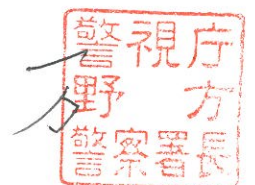 警視庁
野方
警察署長